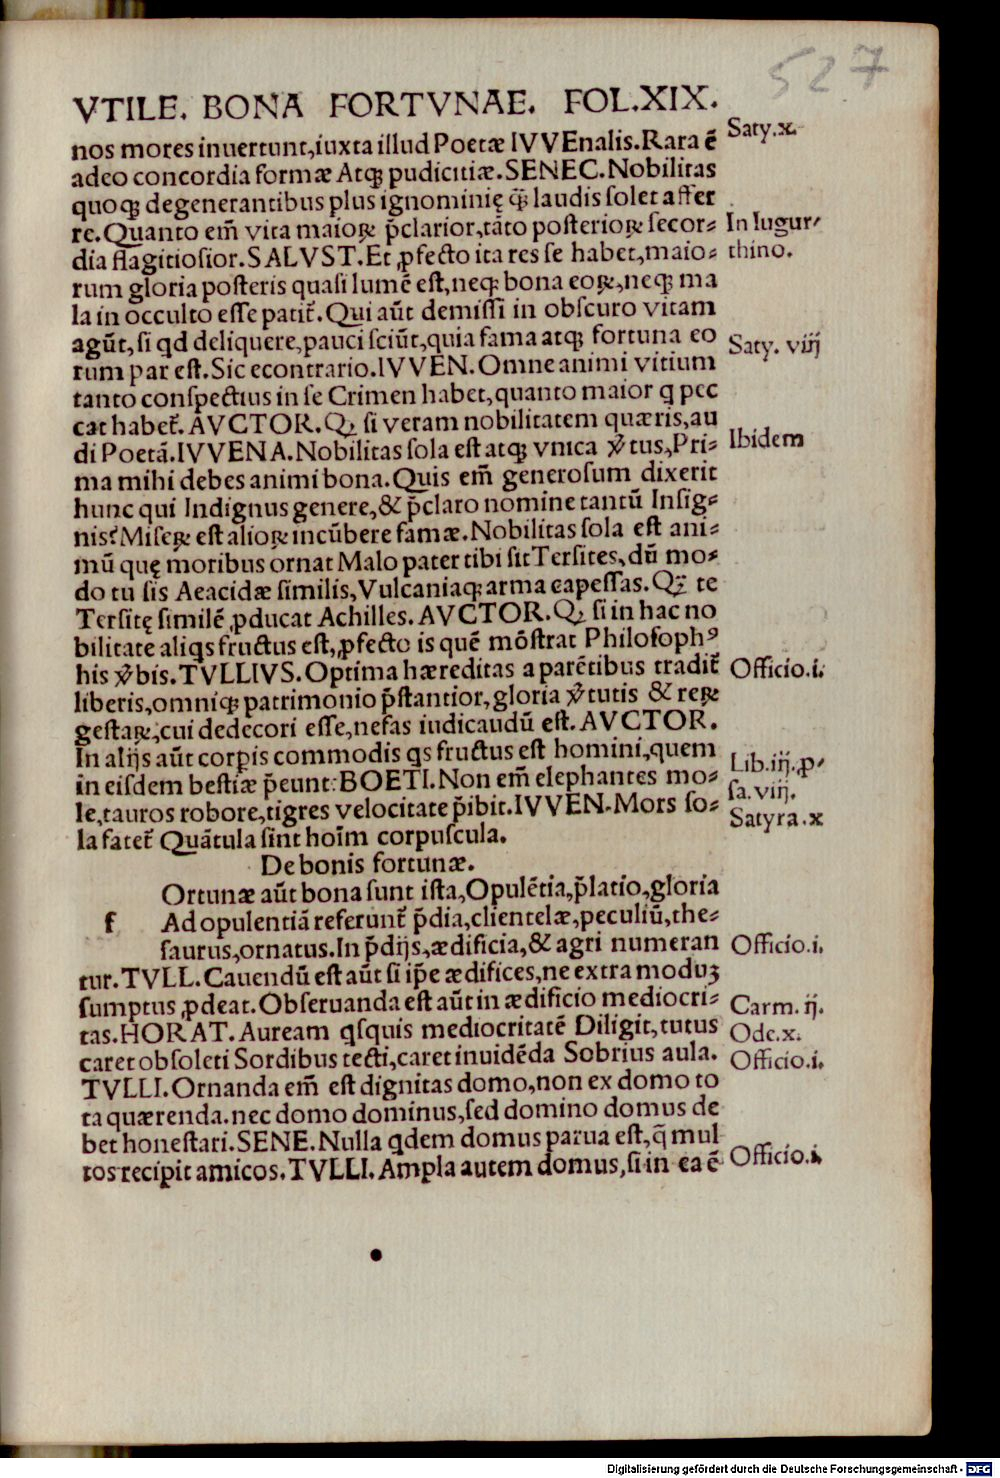 527
VTILE. BONA FORTVNAE. FOL.XIX.
nos mores inuertunt,iuxta illud Poetæ IVVEnalis.Rara ē
Saty.x.
adeo concordia formæ Atqꝫ pudicitiæ.SENEC.Nobilitas
quoqꝫ degenerantibus plus ignominię q̄ꝫ laudis solet affer
re.Quanto em̄ vita maioꝝ p̄clarior,tāto posterioꝝ secor⸗
In Iugur⸗
dia flagitiosior.SALVST.Et ꝓfecto ita res se habet,maio⸗
thino.
rum gloria posteris quasi lumē est,neqꝫ bona eoꝝ,neqꝫ ma
la in occulto esse patit᷑.Qui aūt demissi in obscuro vitam
agūt,si qd deliquere,pauci sciūt,quia fama atqꝫ fortuna eo
Saty. viij
rum par est.Sic econtrario.IVVEN.Omne animi vitium
tanto conspectius in se Crimen habet,quanto maior q pec
cat habet᷑.AVCTOR.Qꝫ si veram nobilitatem quæris,au
di Poetā.IVVENA.Nobilitas sola est atqꝫ vnica v̄tus,Pri⸗
Ibidem
ma mihi debes animi bona.Quis em̄ generosum dixerit
hunc qui Indignus genere,& p̄claro nomine tantū Insig⸗
nis?Miseꝝ est alioꝝ incūbere famæ.Nobilitas sola est ani⸗
mū quę moribus ornat Malo pater tibi sit Tersites,dū mo⸗
do tu sis Aeacidæ similis,Vulcaniaqꝫ arma capessas.Qꝫ te
Tersitę similē ꝓducat Achilles.AVCTOR.Qꝫ si in hac no
bilitate aliqs fructus est,ꝓfecto is quē mōstrat Philosophꝰ
his v̄bis.TVLLIVS.Optima hæreditas a parētibus tradit᷑
Officio.i.
liberis,omniqꝫ patrimonio p̄stantior,gloria v̄tutis & reꝝ
gestaꝝ,cui dedecori esse,nefas iudicaudū est.AVCTOR.
In alijs aūt corꝑis commodis qs fructus est homini,quem
in eisdem bestiæ p̄eunt:BOETI.Non em̄ elephantes mo⸗
Lib.iij.ꝓ⸗
sa.viij.
le,tauros robore,tigres velocitate p̄ibit.IVVEN.Mors so⸗
Satyra.x
la fatet᷑ Quātula sint hoīm corpuscula.
De bonis fortunæ.
Ortunæ aūt bona sunt ista,Opulētia,p̄latio,gloria
f Ad opulentiā referunt᷑ p̄dia,clientelæ,peculiū,the⸗
saurus,ornatus.In p̄dijs,ædificia,& agri numeran
Officio.i.
tur.TVLL.Cauendū est aūt si ip̄e ædifices,ne extra moduꝫ
sumptus ꝓdeat.Obseruanda est aūt in ædificio mediocri⸗
Carm. ij.
tas.HORAT.Auream qsquis mediocritatē Diligit,tutus
Ode.x.
caret obsoleti Sordibus tecti,caret inuidēda Sobrius aula.
Officio.i.
TVLLI.Ornanda em̄ est dignitas domo,non ex domo to
ta quærenda.nec domo dominus,sed domino domus de
bet honestari.SENE.Nulla qdem domus parua est,q̄ mul
tos recipit amicos.TVLLI.Ampla autem domus,si in ea ē
Officio.i.
Digitalisierung gefördert durch die Deutsche Forschungsgemeinschaft - DFG